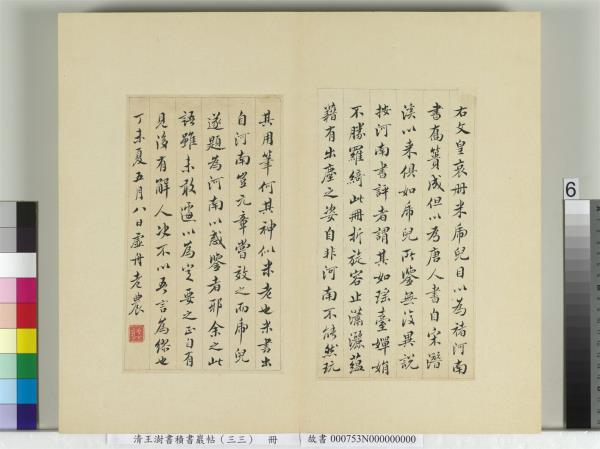 右文皇哀冊米虎兒目以為褚河南
書舊簣成但以為唐人書自宋潛
溪以來俱如虎兒所鑒無復異說
按河南書評者謂其如瑤臺嬋娟
不勝羅綺此冊折旋容止瀟灑蘊
藉有出塵之姿自非河南不能然玩
其用筆何其神似米老也米書出
自河南豈元章嘗放之而虎兒
遂題為河南以惑鑒者邪余之此
語雖未敢遽以為定要之正自有
見後有解人決不以吾言為繆也
丁未夏五月八日虛舟老農
清王澍書積書巖帖(三三) 冊 故書 000753N000000000
6